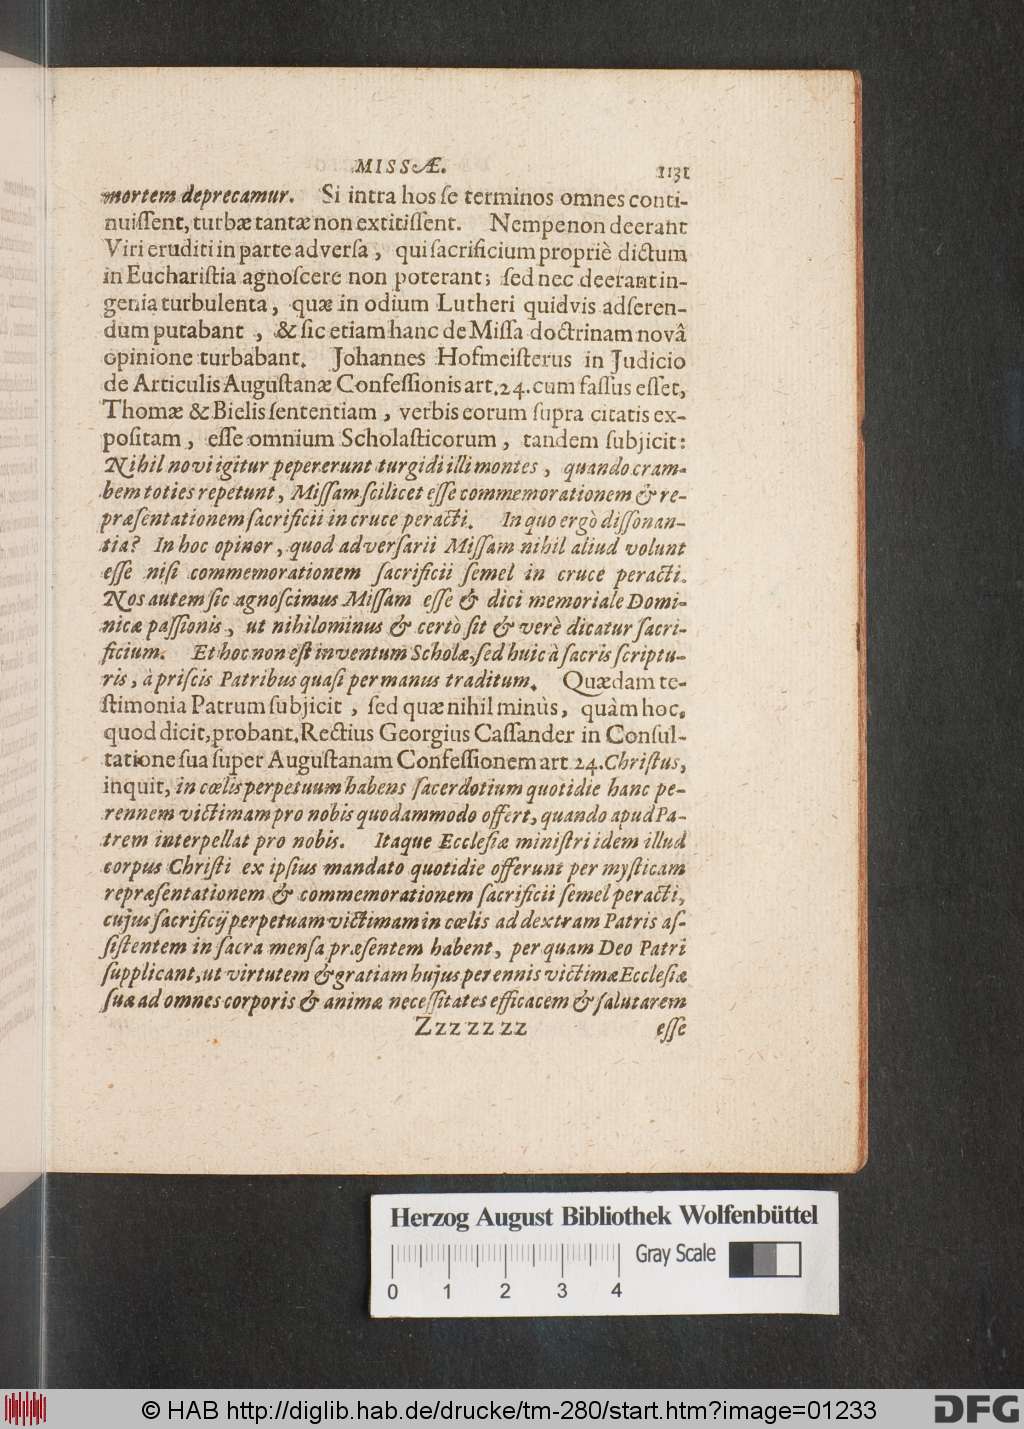 MISSÆ. 1131
mortem deprecamur. Si intra hos ſe terminos omnes conti-
nuiſſent, turbæ tantæ non extitiſſent. Nempe non deerant
Viri eruditi in parte adverſa, qui ſacrificium propriè dictum
in Euchariſtia agnoſcere non poterant; ſed nec deerant in-
genia turbulenta, quæ in odium Lutheri quidvis adſeren-
dum putabant, & ſic etiam hanc de Miſſa doctrinam novâ
opinione turbabant. Johannes Hofmeiſterus in Judicio
de Articulis Auguſtanæ Confeſſionis art. 24. cum faſſus eſſet,
Thomæ & Bielis ſententiam, verbis eorum ſupra citatis ex-
poſitam, eſſe omnium Scholaſticorum, tandem ſubjicit:
Nihil novi igitur pepererunt turgidi illi montes, quando cram-
bem toties repetunt, Miſſam ſcilicet eſſe commemorationem & re-
præſentationem ſacrificii in cruce peracti. In quo ergò diſſonan-
tia? In hoc opinor, quod adverſarii Miſſam nihil aliud volunt
eſſe niſi commemorationem ſacrificii ſemel in cruce peracti.
Nos autem ſic agnoſcimus Miſſam eſſe & dici memoriale Domi-
nicæ paſſionis, ut nihilominus & certò ſit & verè dicatur ſacri-
ficium. Et hoc non eſt inventum Scholæ, ſed huic à ſacris ſcriptu-
ris, à priſcis Patribus quaſi per manus traditum. Quædam te-
ſtimonia Patrum ſubjicit, ſed quæ nihil minùs, quàm hoc,
quod dicit, probant. Rectius Georgius Caſſander in Conſul-
tatione ſua ſuper Auguſtanam Confeſſionem art 24. Chriſtus,
inquit, in cœlis perpetuum habens ſacerdotium quotidie hanc pe-
rennem victimam pro nobis quodammodo offert, quando apud Pa-
trem interpellat pro nobis. Itaque Eccleſiæ miniſtri idem illud
corpus Chriſti ex ipſius mandato quotidie offerunt per myſticam
repræſentationem & commemorationem ſacrificii ſemel peracti,
cujus ſacrificij perpetuam victimam in cœlis ad dextram Patris aſ-
ſiſtentem in ſacra menſa præſentem habent, per quam Deo Patri
ſupplicant, ut virtutem & gratiam hujus perennis victimæ Eccleſiæ
ſuæ ad omnes corporis & animæ neceſſitates efficacem & ſalutarem
Zzz zz zz eſſe
Herzog August Bibliothek Wolfenbüttel
Gray Scale
0 1 2 3 4
© HAB http://diglib.hab.de/drucke/tm-280/start.htm?image=01233
DFG